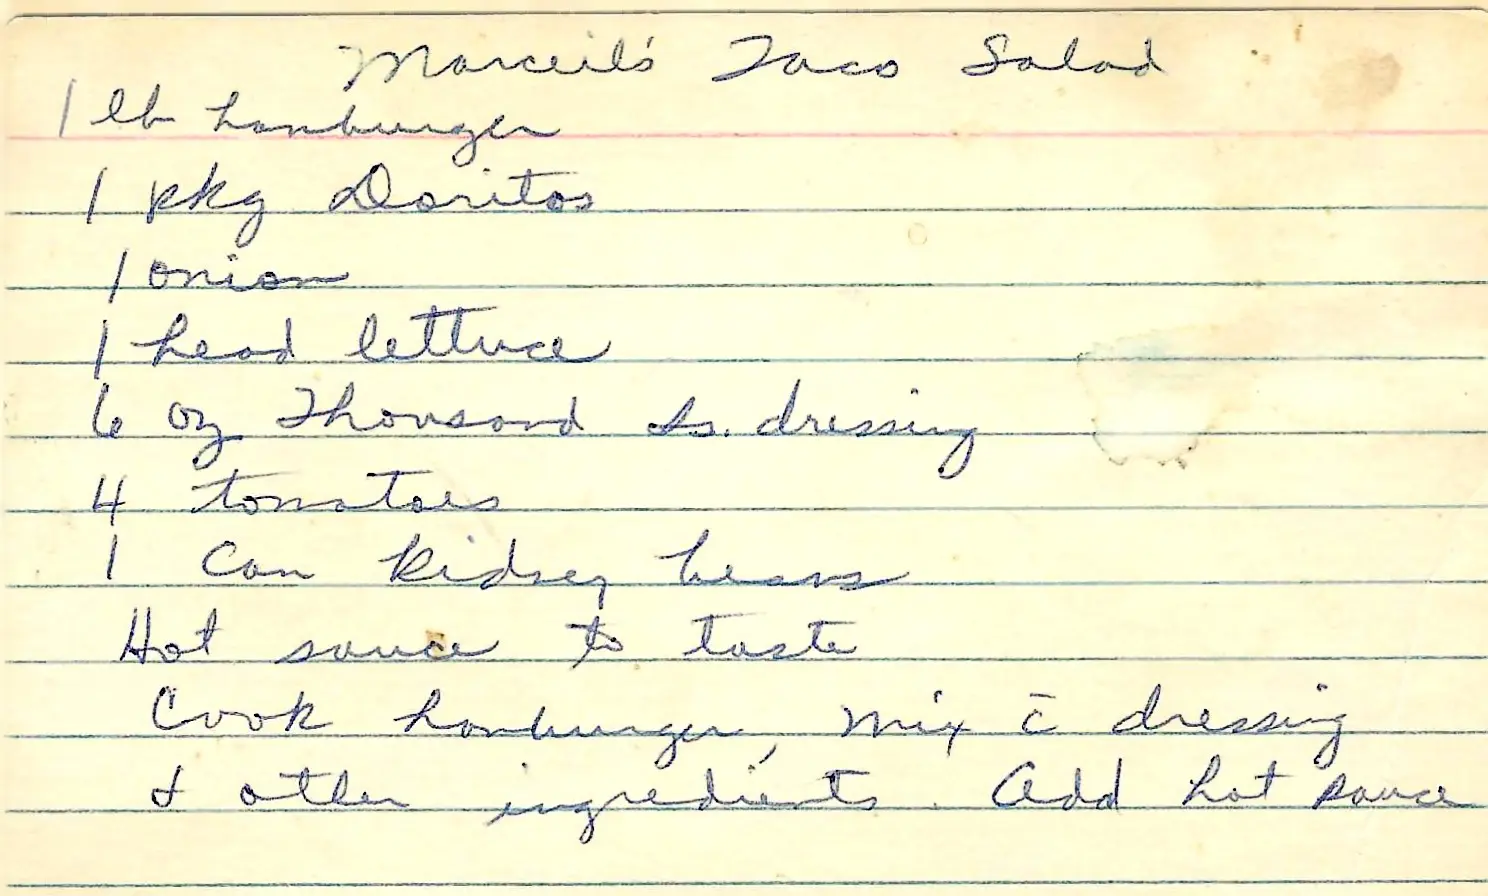 Marceil's Taco Salad
1 lb hamburger
1 pkg Doritos
1 onion
1 head lettuce
6 oz Thousand Is. dressing
4 tomatoes
1 can kidney beans
Hot sauce to taste
Cook hamburger, mix c̄ dressing
& other ingredients. Add hot sauce